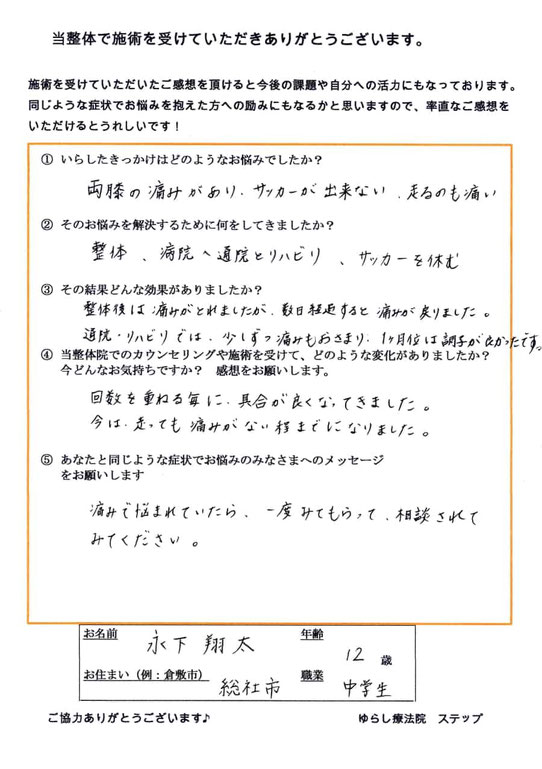 当整体で施術を受けていただきありがとうございます。
施術を受けていただいたご感想を頂けると今後の課題や自分への活力にもなっております。
同じような症状でお悩みを抱えた方への励みにもなるかと思いますので、率直なご感想を
いただけるとうれしいです！
① いらしたきっかけはどのようなお悩みでしたか？
両膝の痛みがあり、サッカーが出来ない、走るのも痛い
② そのお悩みを解決するために何をしてきましたか？
整体、病院へ通院とリハビリ、サッカーを休む
③ その結果どんな効果がありましたか？
整体後は痛みがとれましたが、数日経過すると痛みが戻りました。
通院・リハビリでは、少しずつ痛みもおさまり、1ヶ月位は調子が良かったです。
④ 当整体院でのカウンセリングや施術を受けて、どのような変化がありましたか？
今どんなお気持ちですか？ 感想をお願いします。
回数を重ねる毎に、具合が良くなってきました。
今は、走っても痛みがない程までになりました。
⑤ あなたと同じような症状でお悩みのみなさまへのメッセージ
をお願いします
痛みで悩まれていたら、一度みてもらって、相談されて
みてください。
お名前 永下 翔太 年齢 12 歳
お住まい（例：倉敷市） 総社市 職業 中学生
ご協力ありがとうございます♪ ゆらし療法院 ステップ